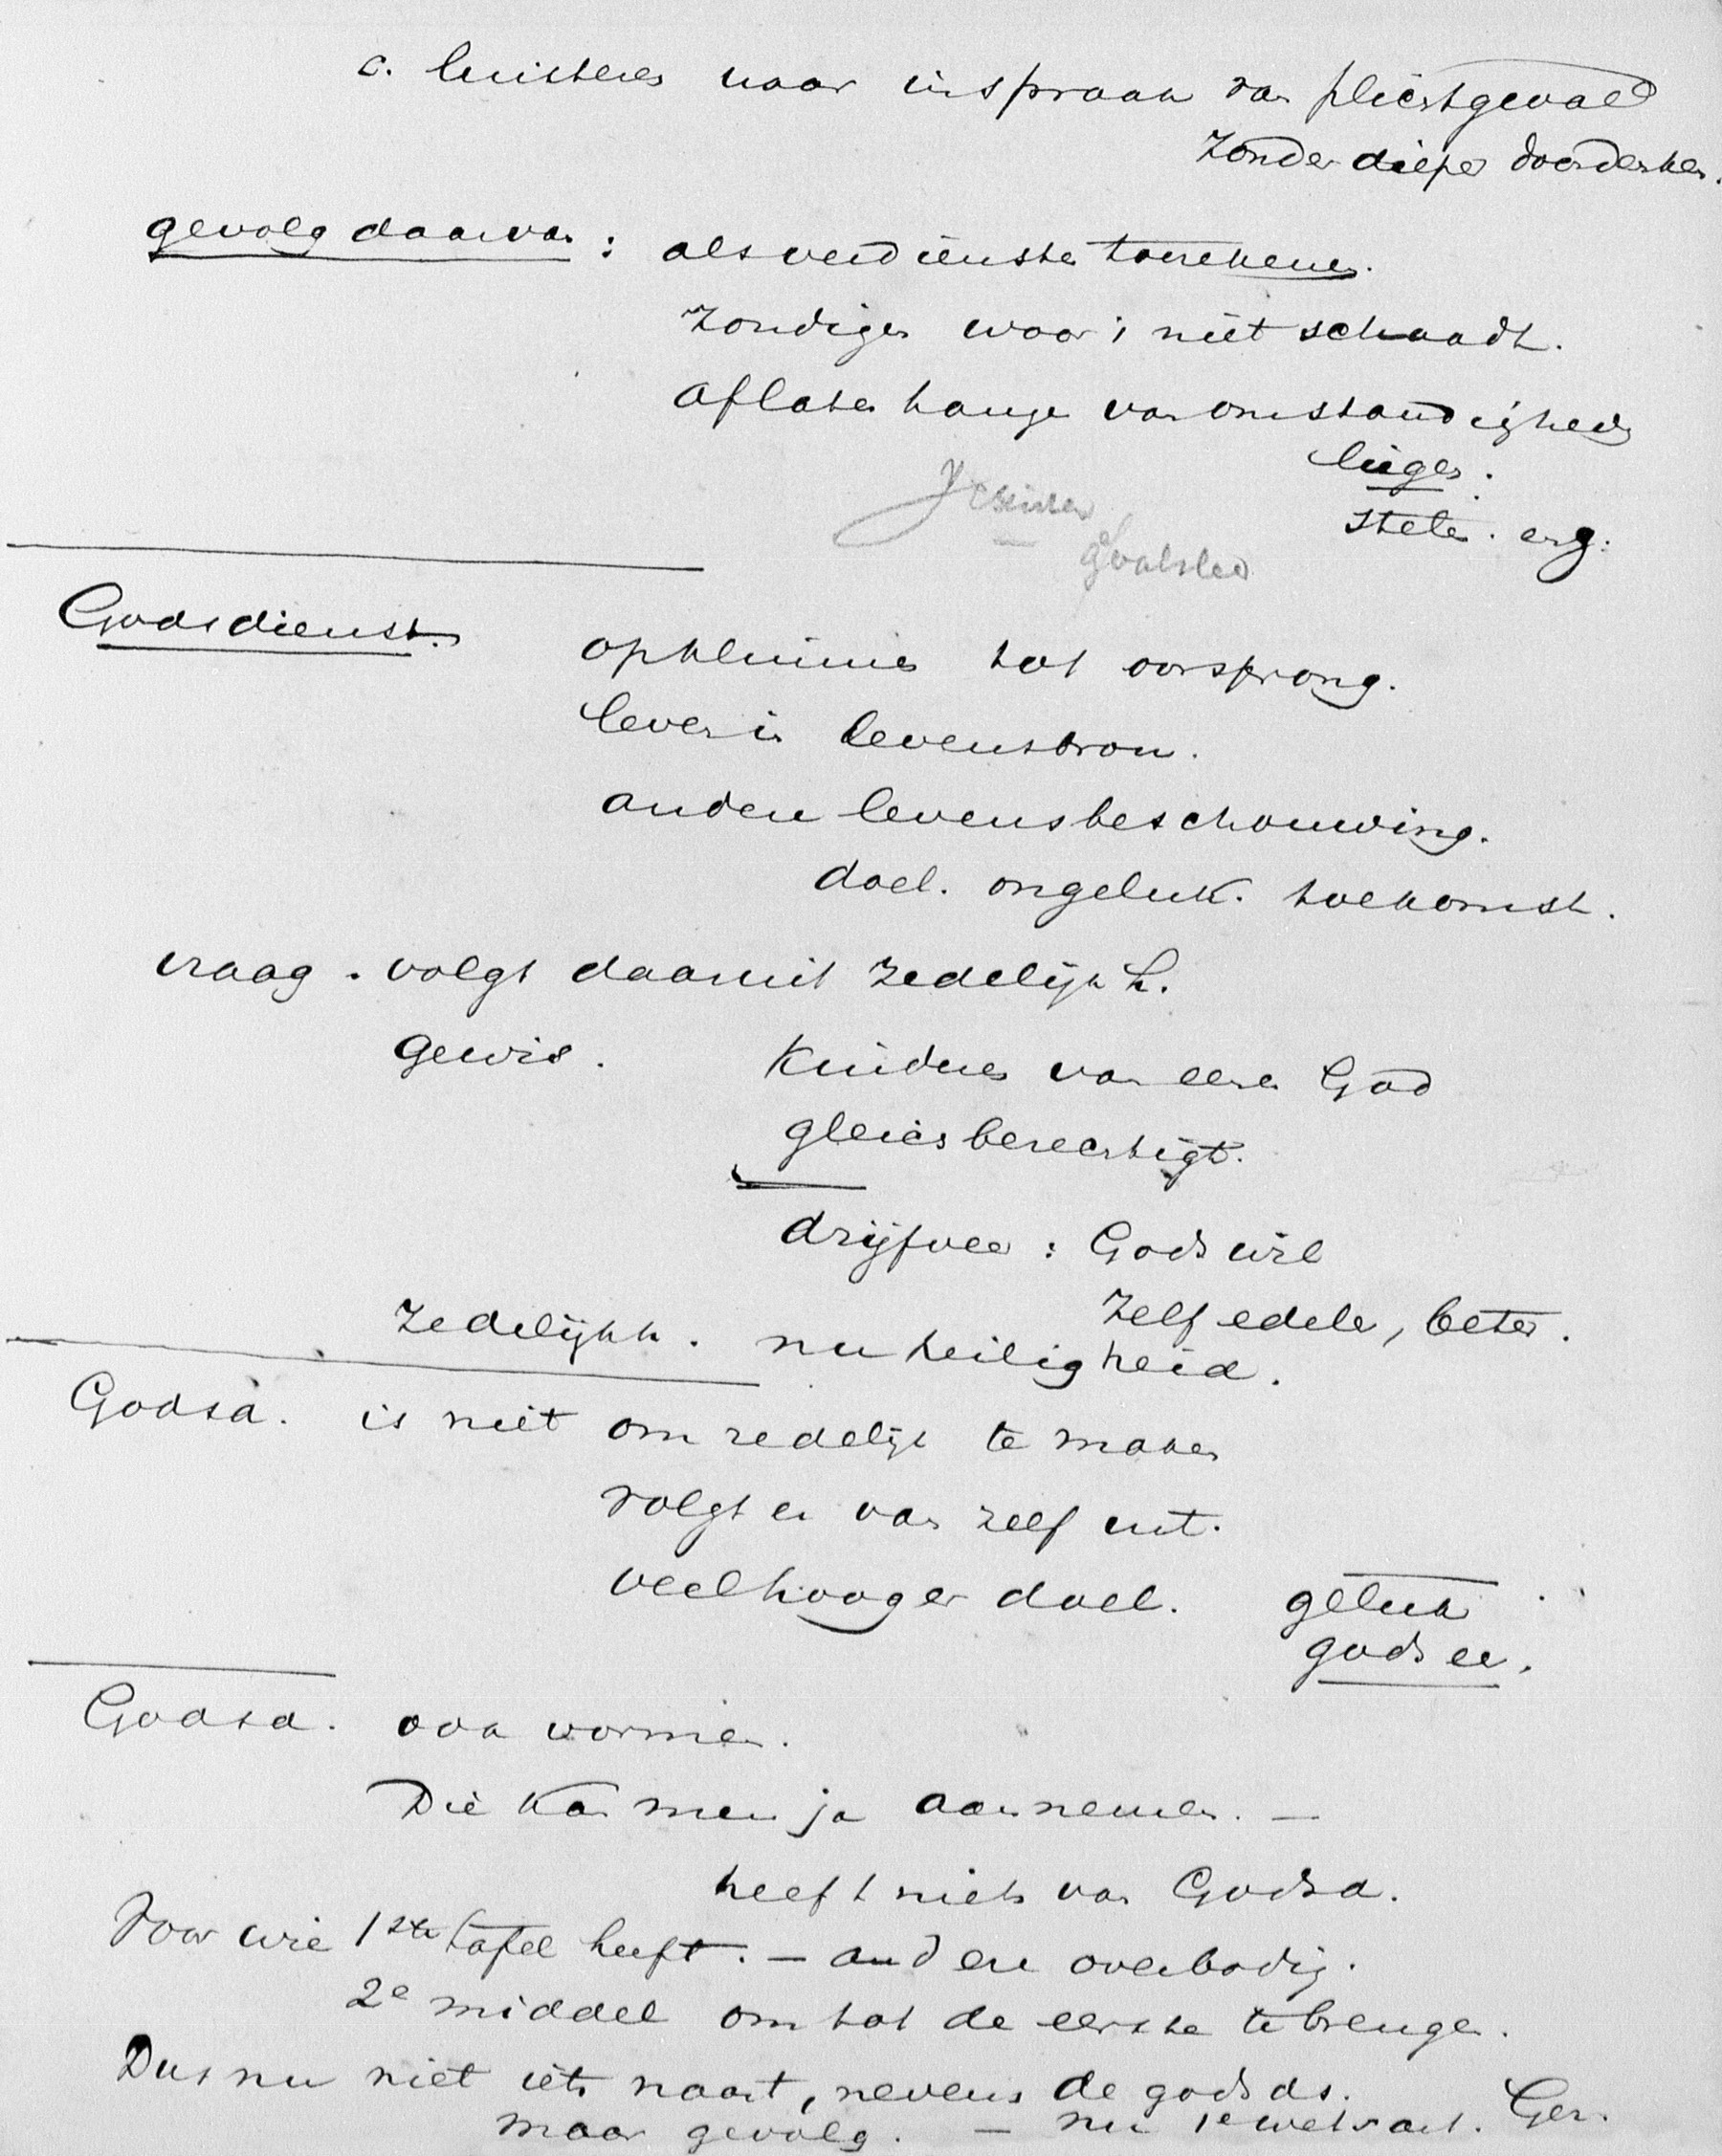 c. luisteren naar inspraak van plichtgevoel
zonder dieper doordenken.
gevolg daarvan : als verdienste toerekenen.
zondigen waar 't niet schaadt.
aflaten hangen van omstandigheden
liegen.
stelen. erg.
Godsdienst.
opklimmen tot oorsprong.
leven in levensbron.
andere levensbeschouwing.
doel. ongeluk. toekomst.
vraag. volgt daaruit zedelijkh.
gewis. Kinderen van eenen God
gleichberechtigt.
drijfveer : Gods wil
zelf edeler, beter.
zedelijkh. nu heiligheid.
Godsd. is niet om zedelijk te maken
volgt er van zelf uit.
veel hooger doel. geluk
gods eer.
Godsd. ook vormen.
Die kan men ja aannemen. —
heeft niets van Godsd.
Voor wie 1ste tafel heeft. — andere overbodig.
2e middel om tot de eerste te brengen.
Dus nu niet iets naast, nevens de godsds.
maar gevolg. — nu 1e